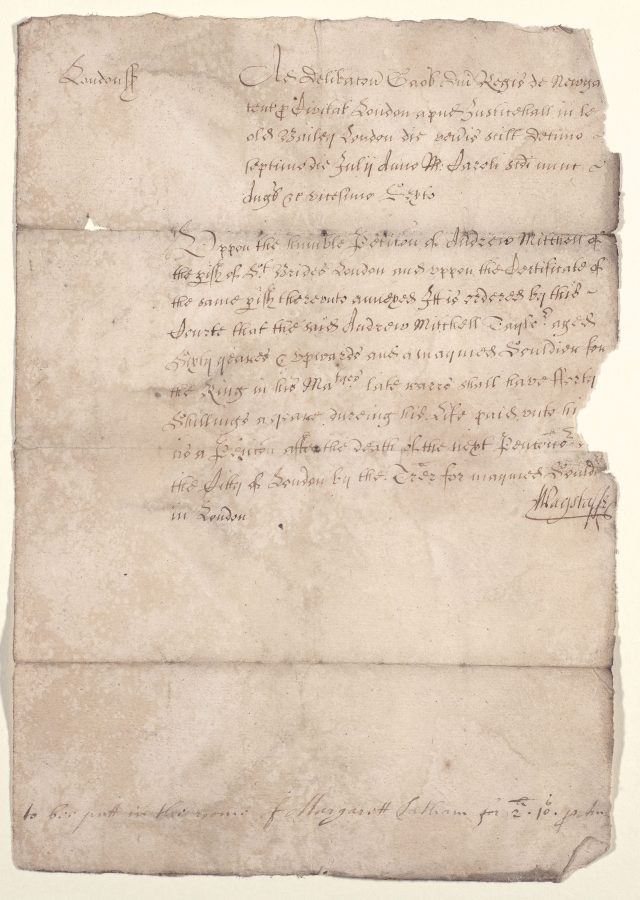 London ss
Ad deliberaton Gaol dni Regis de Newga
tent p Civitat London apud Justicehall in le
old Bailey London die veneris scilt decimo
septimo die Julij Anno RR Caroli scdi nunc
Angl &c vicesimo Sexto
Uppon the humble Peticion of Andrew Mitchell of
the pish of St Brides London and uppon the Certificate of
the same pish thereunto annexed Itt is ordered by this
Courte that the said Andrew Mitchell Taylor aged
Sixty yeares & upwards and a maymed Souldier for
the King in his Maties late warrs shall have fforty
Shillings a yeare dureing his Life paid unto hi
as a Pencon after the death of the next Penconer
the Citty of London by the Trer for maymed Sould
in London
Wagstaffe
to bee putt in the roome of Margarett Latham